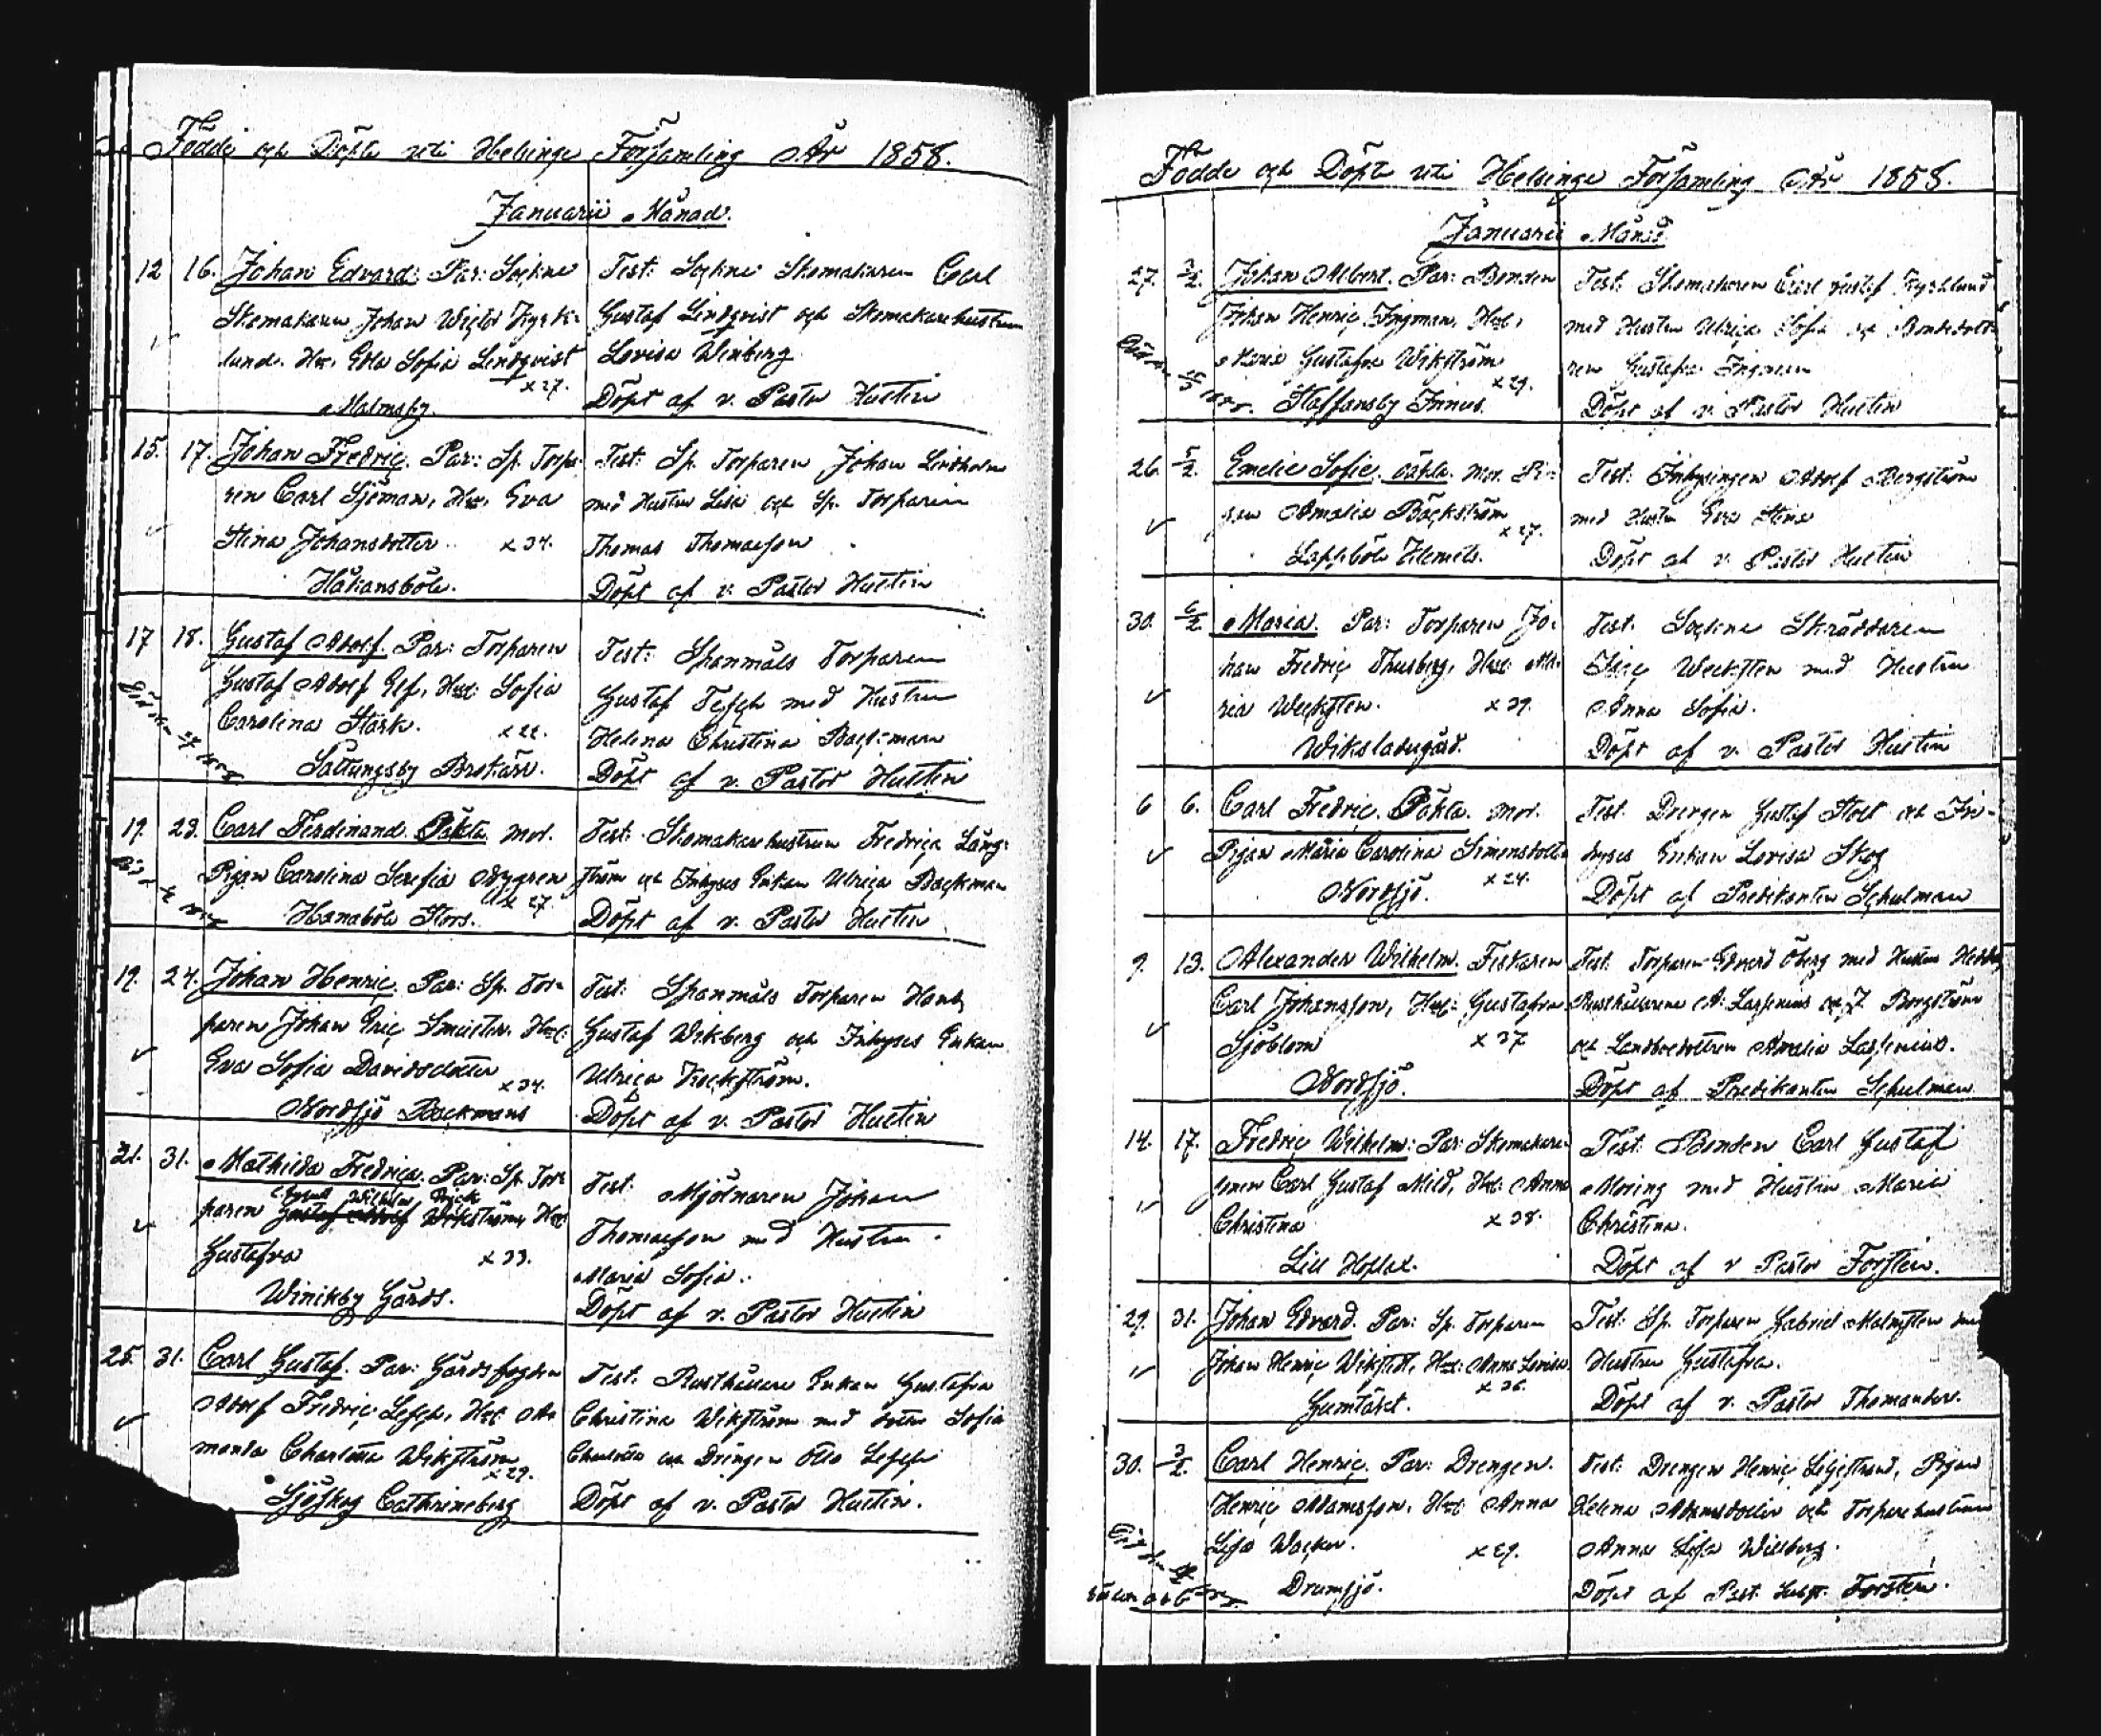 Födde och Döpte uti Helsinge Församling År 1858.
Januarii Månad.
12 16. Johan Edvard: Par: Sockne
Skomakaren Johan Wictor Kyrk-
lund. Hu: Edla Sofia Lindqvist
x 27.
Malmsby.
Test: Sockne Skomakaren Carl
Gustaf Lindqvist och Skomakarehustrun
Lovisa Winberg.
Döpt af v. Pastor Hustin
15. 17. Johan Fredric. Par: Sp. Torpa-
ren Carl Sjöman, Hu: Eva
Stina Johansdotter. x 34.
Håkansböle.
Test: Sp. Torparen Johan Lindholm
med Hustru Lisa och Sp. Torparen
Thomas Thomasson
Döpt af v. Pastor Hustin
17 18. Gustaf Adolf. Par: Torparen
Gustaf Adolf Elf, Hu: Sofia
Carolina Stark. x 22.
Sottungsby
Test: Spanmåls Torparen
Gustaf med Hustru
Helena Christina Backman
Döpt af v. Pastor Hustin
19. 23. Carl Ferdinand. Oäkta. Mod.
Pigan Carolina Serafia Nygren
x 27.
Hanaböle Stors.
Test: Skomakarehustrun Fredrica Lång-
ström och Inhyses Enkan Ulrica Backman
Döpt af v. Pastor Hustin
19. 24. Johan Henric. Par: Sp. Tor-
paren Johan Eric Hu:
Eva Sofia Davidsdotter
x 34.
Nordsjö Backmans
Test: Spanmåls Torparen
Gustaf Wikberg och Inhyses Enkan
Ulrica
Döpt af v. Pastor Hustin
21. 31. Mathilda Fredrica. Par: Sp. Tor-
Wilhelm
paren Gustaf Adolf Wikström, Hu:
Gustafva x 33.
Winikby Gårds.
Test: Mjölnaren Johan
Thomasson med Hustru
Maria Sofia.
Döpt af v. Pastor Hustin
25. 31. Carl Gustaf. Par: Gårdsfogden
Adolf Fredric Hu: A-
manda Charlotta Wikström
x 29.
Sjöskog Cathrineberg
Test: Rusthållare Enkan Gustafva
Christina Wikström med Sofia
Charlotta och Drengen Otto
Döpt af v. Pastor Hustin.
Födde och Döpte uti Helsinge Församling År 1858.
Januarii Månad
27. 3/2. Johan Albert. Par: Bonden
Johan Henric Ingman, Hu:
Maria Gustafva Wikström
x 29.
Staffansby
Test: Skomakaren Carl Gustaf Kyrklund
med Hustru Ulrica Sofia och Bondedott-
ren Gustafva Ingman
Döpt af v. Pastor Hustin
26. 5/2. Emelie Sofie. Oäkta. Mod. Pi-
gan Amalia Bäckström
x 27.
Lappböle
Test: Inhysingen Adolf Bergström
med Hustru Eva Stina
Döpt af v. Pastor Hustin
30. 6/2. Maria. Par: Torparen Jo-
han Fredric Thusberg, Hu: Ma-
ria Wecksten. x 39.
Wiksladugård.
Test: Sockne Skräddaren
Wecksten med Hustru
Anna Sofia.
Döpt af v. Pastor Hustin
6 6. Carl Fredric. Oäkta. Mod.
Pigan Maria Carolina Simonsdotter
x 24.
Nordsjö.
Test. Drengen Gustaf Stolt och In-
hyses Enkan Lovisa Skog
Döpt af Predikanten Schulman
9. 13. Alexander Wilhelm. Fiskaren
Carl Johansson, Hu: Gustafva
Sjöblom x 37
Nordsjö.
Test. Torparen Edvard Öberg med Hustru
Rusthållarene A: Lassenius och J. Borgström
och Landboedottren Amalia Lassenius.
Döpt af Predikanten Schulman
14. 17. Fredric Wilhelm: Par: Skomakare-
Carl Gustaf Mild, Hu: Anna
Christina x 38.
Lill Hoplax.
Test: Bonden Carl Gustaf
Moring med Hustru Maria
Christina.
Döpt af v Pastor Forstén.
29. 31. Johan Edvard. Par: Sp. Torparen
Johan Henric Wikstedt, Hu: Anna Lovisa
x 26.
Gumtäkt.
Test: Sp. Torparen Gabriel Malmsten med
Hustru Gustafva.
Döpt af v. Pastor Thomander.
30. 3/2. Carl Henric. Par: Drengen
Henric Adamsson, Hu: Anna
Lisa Wacker. x 29.
Drumsjö.
Test: Drengen Henric Liljestrand, Pigan
Helena Adamsdotter och Torparehustrun
Anna Lisa Willberg.
Döpt af Past. Forstén.